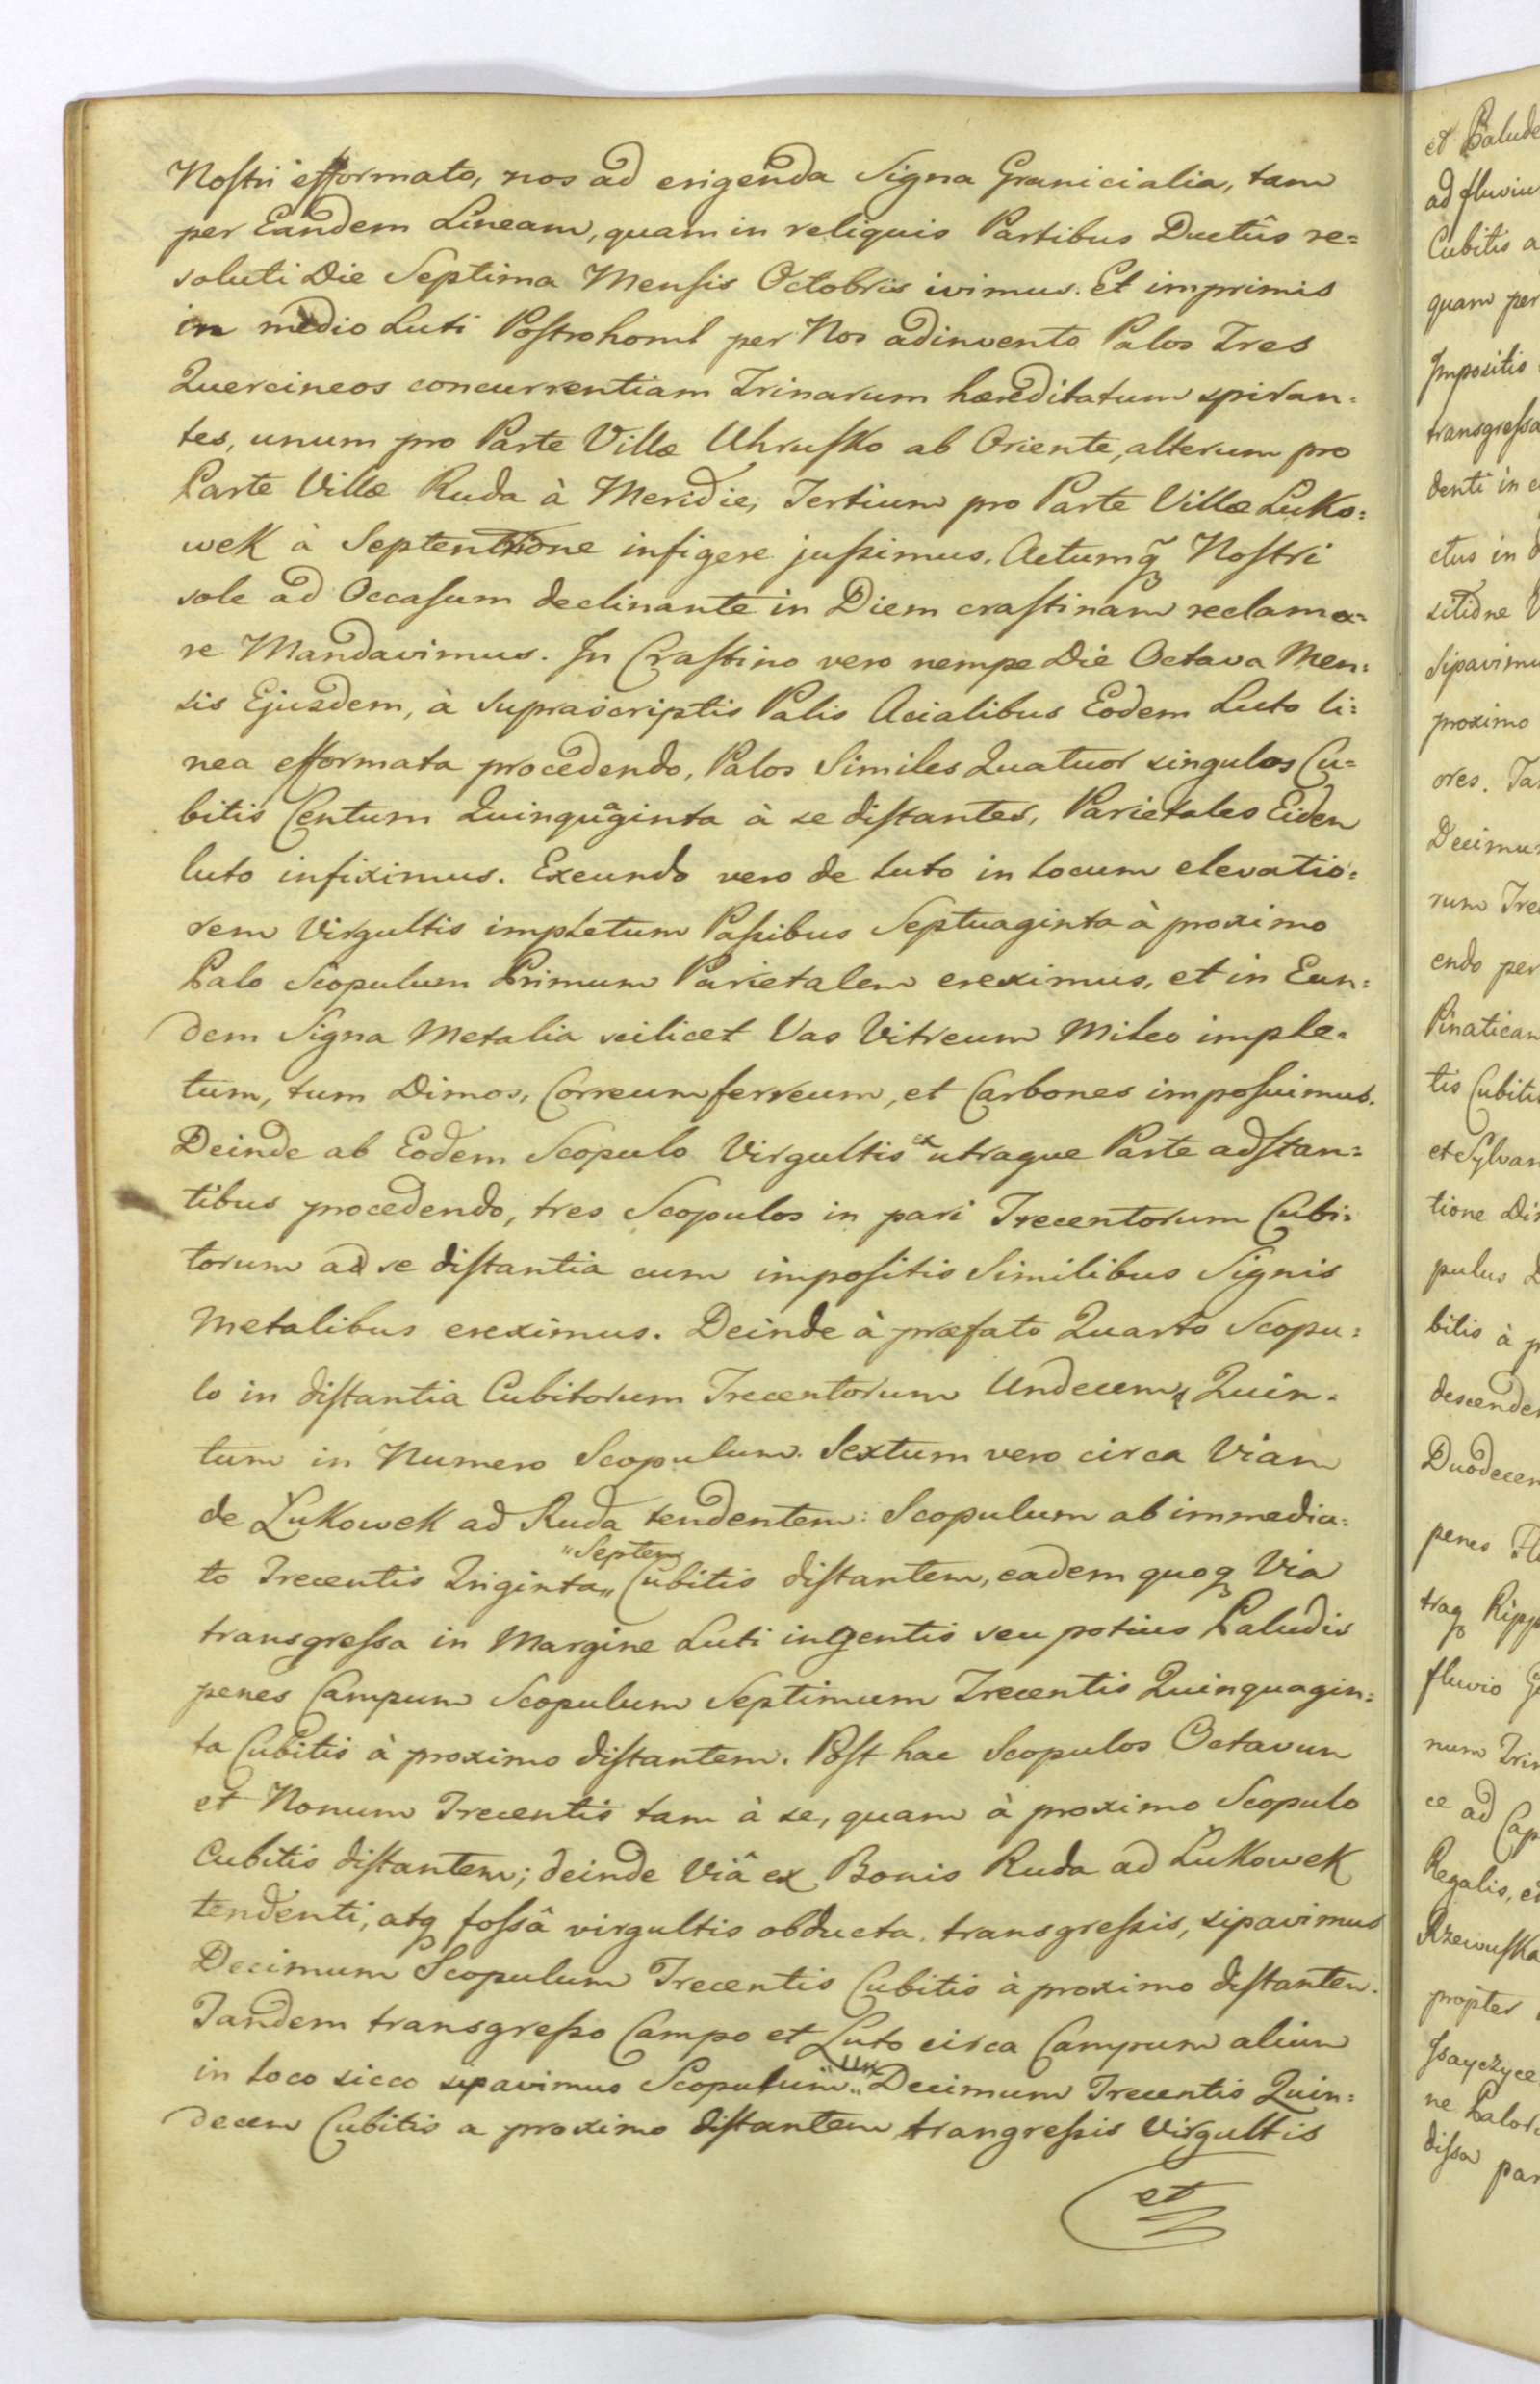 Nostri efformato, nos ad erigenda Signa Granicialia, tam
per Eandem Lineam, quam in reliquis Partibus Ductûs re=
soluti Die Septima Mensis Octobris ivimus. Et imprimis
in medio Luti Postrohoml per Nos adinvento Palos Tres
Quercineos concurrentiam Trinarum hæreditatum spiran=
tes, unum pro Parte Villæ Uhrusko ab Oriente, alterum pro
Parte Villæ Ruda à Meridie, Tertium pro Parte Villæ Luko=
wek à Septentrione infigere jussimus. Actumq Nostri
sole ad Occasum declinante in Diem crastinam reclama=
re Mandavimus. In Crastino vero nempe Die Octava Men=
sis Ejusdem, à suprascriptis Palis Acialibus Eodem Luto li=
nea efformata procedendo, Palos Similes Quatuor singulos Cu=
bitis Centum Quinquaginta à se distantes, Parietales Eidem
luto infiximus. Exeundo vero de luto in locum elevatio=
rem Virgultis impletum Passibus Septuaginta à proximo
Palo Scopulum Primum Parietalem ereximus, et in Eun=
dem Signa Metalia scilicet Vas Vitreum Mileo imple=
tum, tum Dimos, Correum ferreum, et Carbones imposuimus.
Deinde ab Eodem Scopulo Virgultis ex utraque Parte adstan=
tibus procedendo, tres Scopulos in pari Trecentorum Cubi=
torum ad se distantia cum impositis Similibus Signis
Metalibus ereximus. Deinde à præfato Quarto Scopu=
lo in distantia Cubitorum Trecentorum Undecem, Quin=
tum in Numero Scopulum. Sextum vero circa Viam
de Lukowek ad Ruda tendentem: Scopulum ab immedia=
to Trecentis Triginta „Septem„ Cubitis distantem, eadem quoq Via
transgressa in Margine Luti ingentis seu potius Paludis
penes Campum Scopulum Septimum Trecentis Quinquagin=
ta Cubitis à proximo distantem. Post hac Scopulos Octavum
et Nonum Trecentis tam à se, quam à proximo Scopulo
Cubitis distantem; deinde Viâ ex Bonis Ruda ad Lukowek
tendenti, atq fossâ virgultis obducta, transgressis, sipavimus
Decimum Scopulum Trecentis Cubitis à proximo distantem.
Tandem transgresso Campo et Luto circa Campum alium
in loco sicco sipavimus Scopulum „Un„ Decimum Trecentis Quin=
decem Cubitis a proximo distantem, trangressis Virgultis
et
et Palude
ad fluviu
Cubitis a
quam per
Impositis
transgressa
denti in
ctus in
sitione
Sipavimu
proximo
ores. Ta
Decimu
rum Tre
endo per
Pinatican
tis Cubitis
et Sylvan
tione Di
pulus
bitis à p
descende
Duodecem
penes
traq Ripp
fluvio
num Trin
ce ad Cap
Regalis, e
Rzewuska
propter
Jsayczyce
ne Palor
dissa par